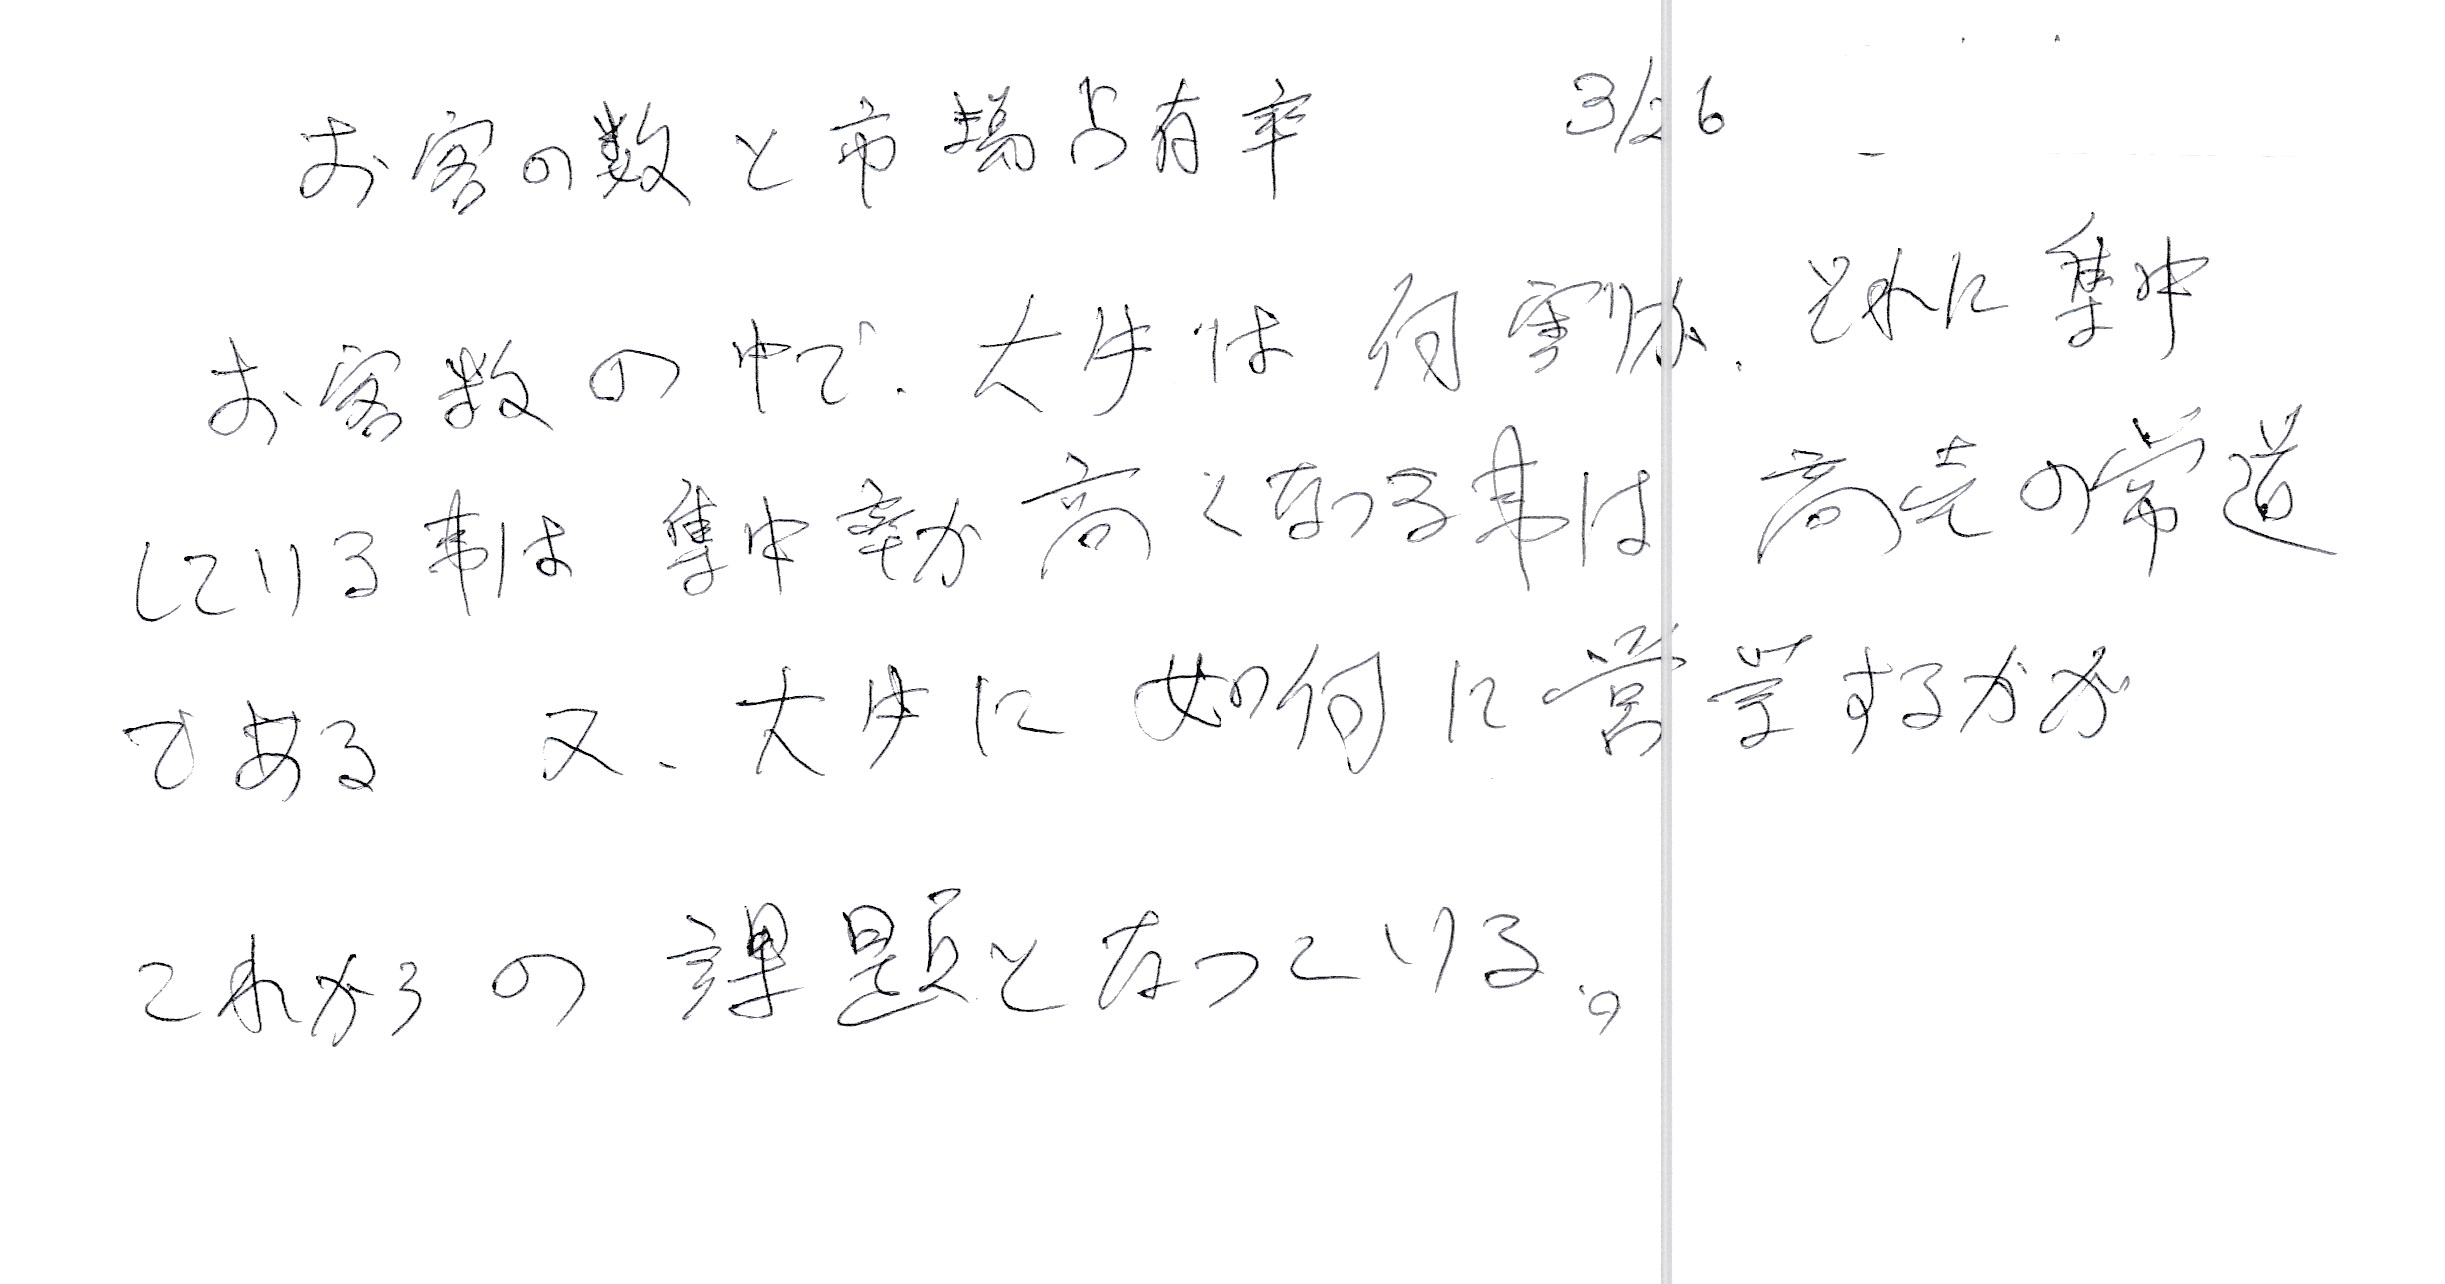 お客の数と市場占有率 3/26
お客数の中で、大牛は何割か、それに集中
している事は集中率が高くなつる事は商売の常道
である 又、大牛に如何に営業するかが
これからの課題となっている。